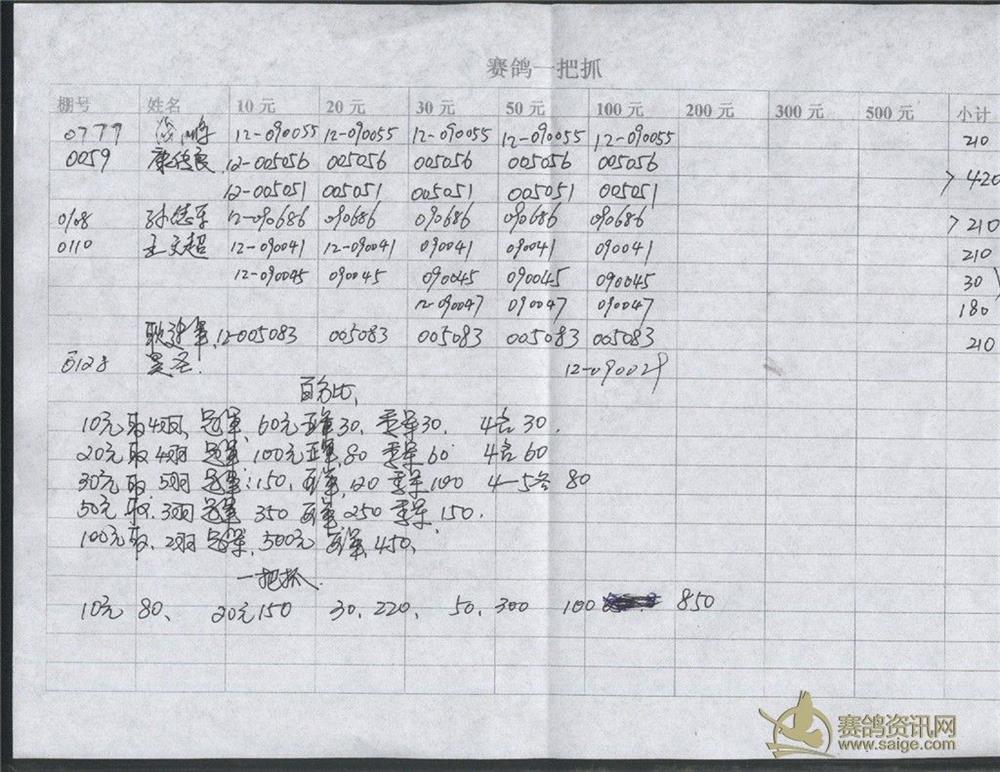 赛鸽一把抓
棚号 姓名 10 元 20 元 30 元 50 元 100 元 200 元 300 元 500 元 小计
0777 鹏 12-090055 12-090055 12-090055 12-090055 12-090055 210
0059 康德良 12-005056 005056 005056 005056 005056
12-005051 005051 005051 005051 005051 > 420
0108 孙德军 12-090686 090686 090686 090686 090686 > 210
0110 王文超 12-090041 12-090041 090041 090041 090041 210
12-090045 090045 090045 090045 090045 30
12-090047 090047 090047 180
耿建军 12-005083 005083 005083 005083 005083 210
0128 吴圣 12-090029
百分比
10元取4羽, 冠军, 60元亚军30, 季军30. 4名30.
20元取4羽 冠军 100元亚军, 80 季军60 4名60
30元取, 5羽 冠军:150, 亚军, 120 季军, 100 4-5名 80
50元取, 3羽 冠军 350 亚军, 250 季军, 150.
100元取, 2羽 冠军, 500元 亚军, 450,
一把抓
10元 80、 20元150 30、220、 50、300 100 850
赛鸽资讯网
www.saige.com